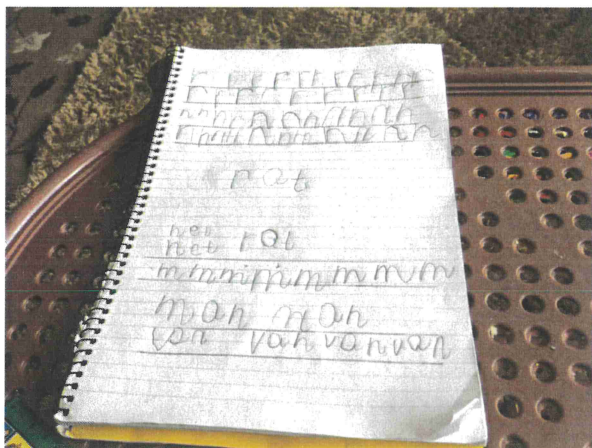 r r r r r r r r r r
r r r r r r r r
n n n n n n n n n
n n n n n n n n n n
r a t
net
net rat
m m m m m m m m m
man man
van van van van